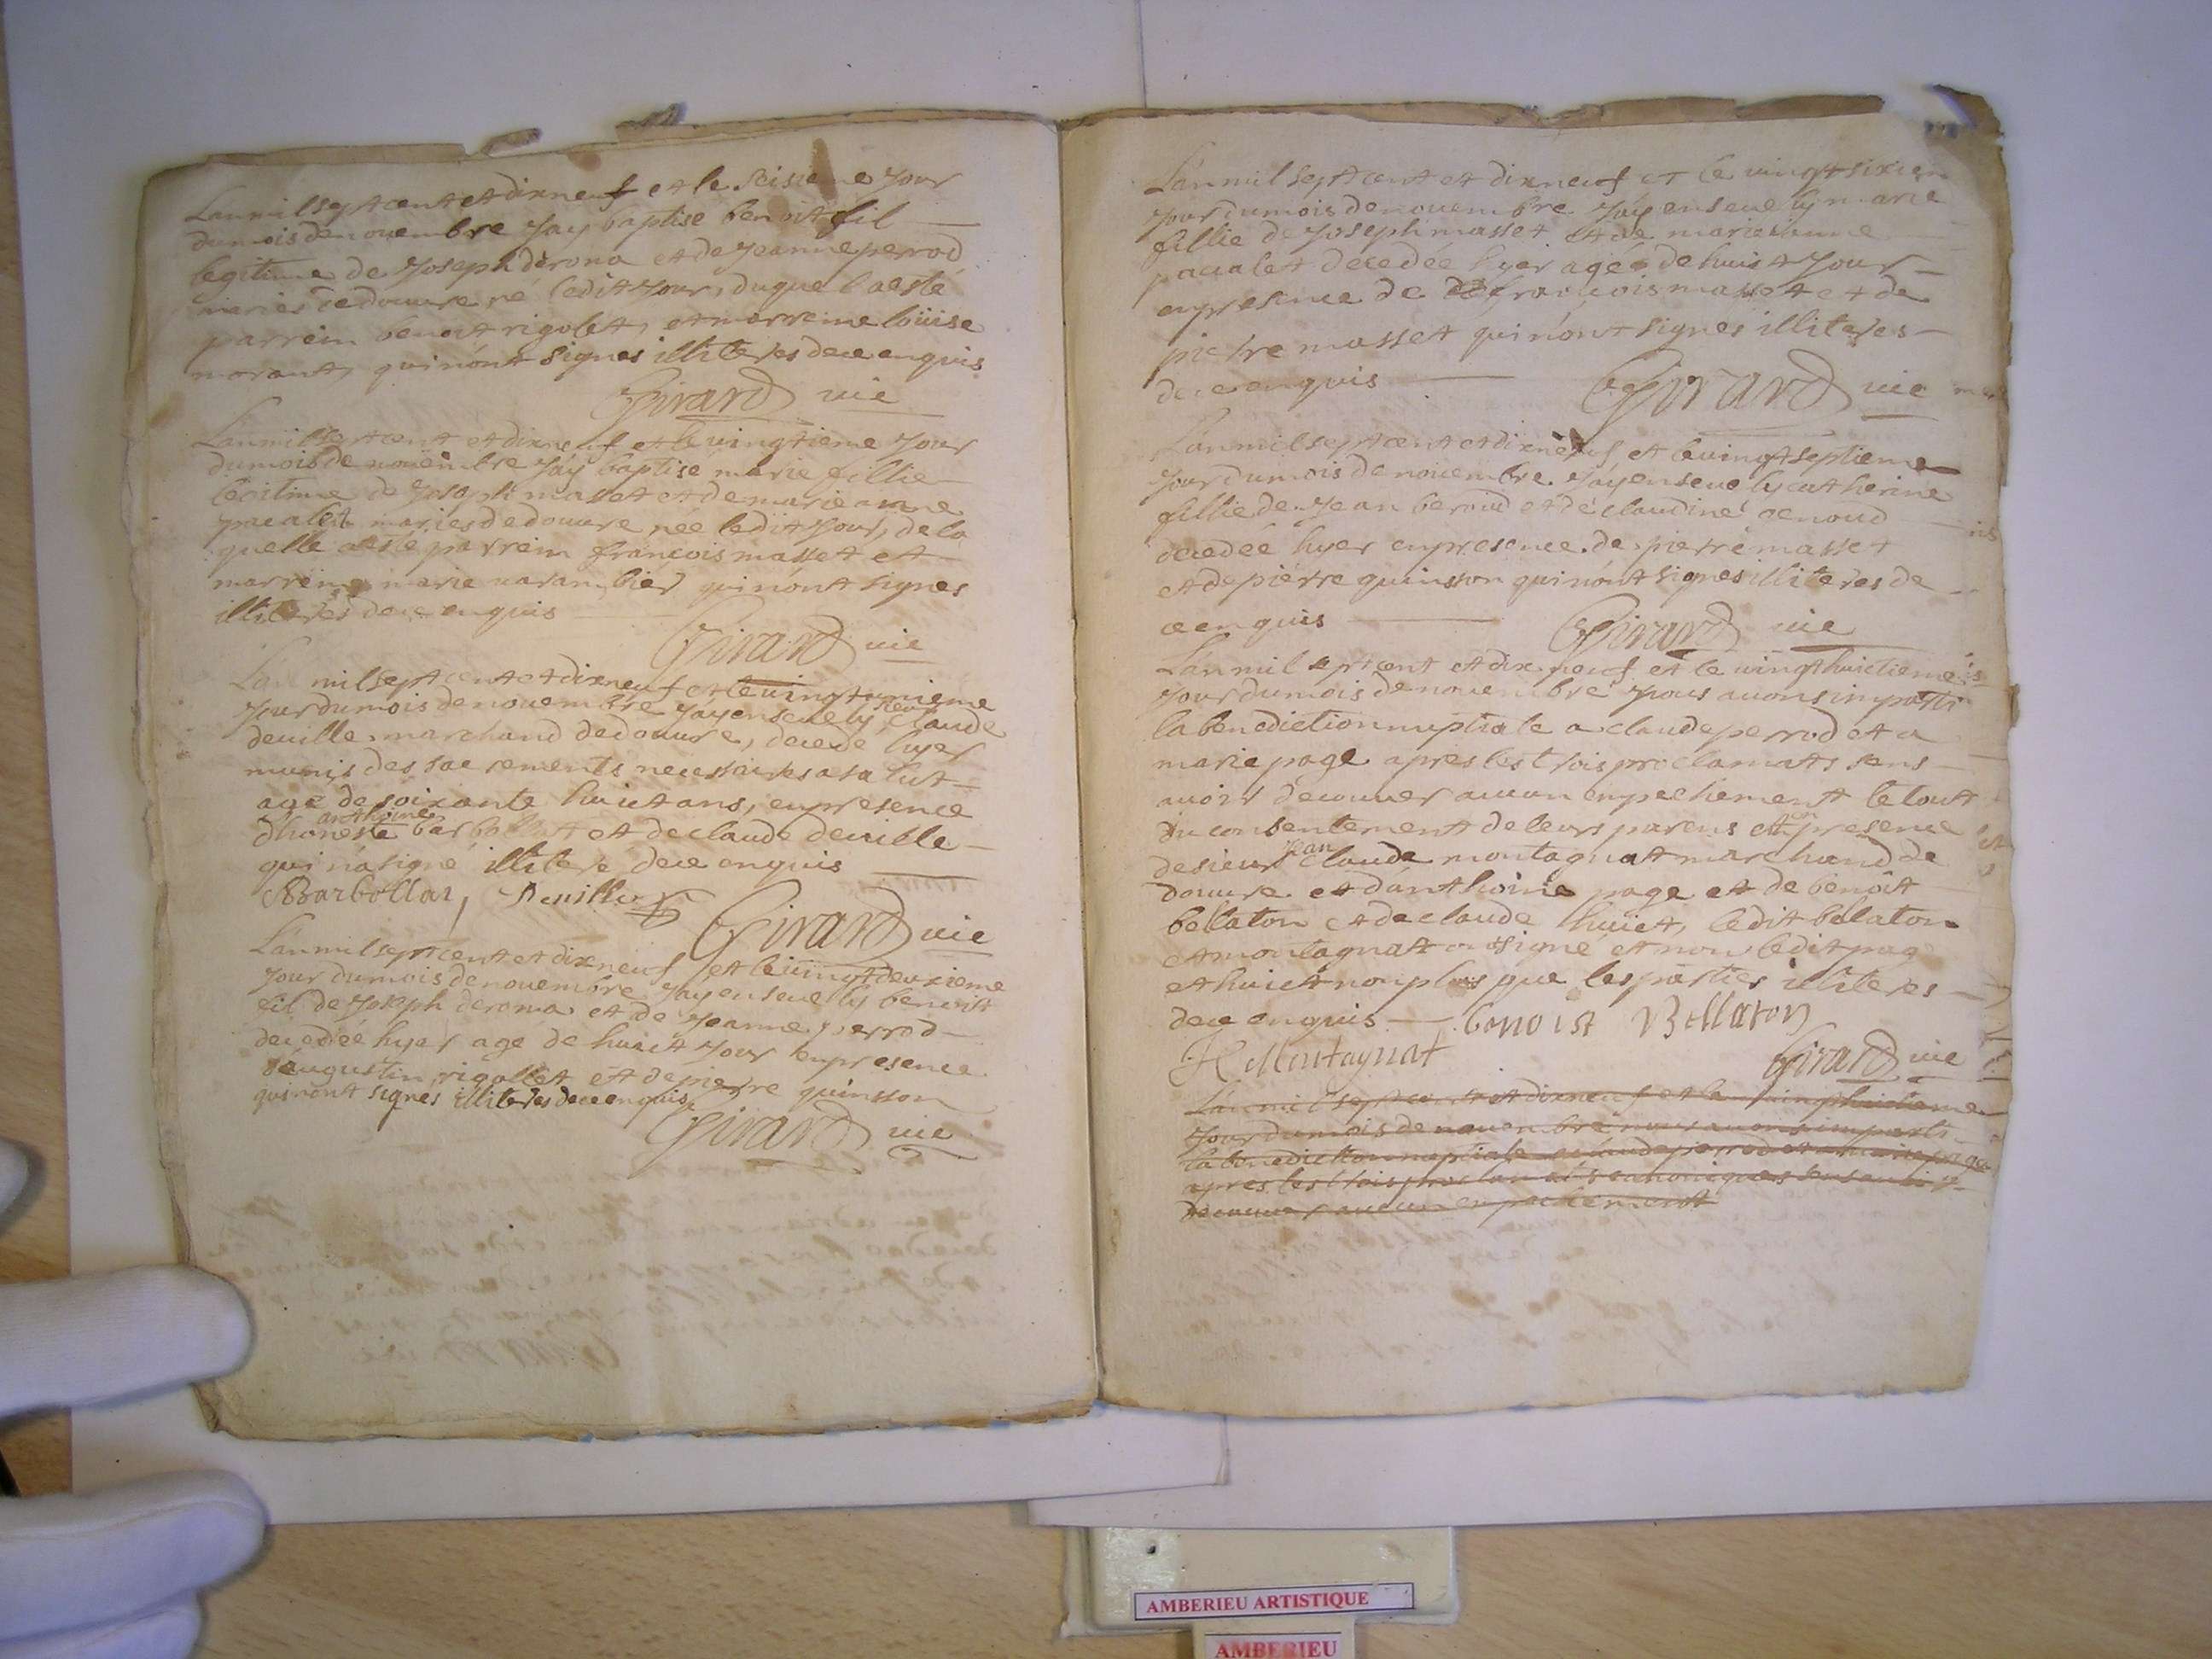 L'an mil sept cent et dix neuf et le seisieme jour
du mois de novembre j'ay baptise benoit fil
legitime de joseph derona et de jeanne perrod
maries de douvre né ledit jour, duquel a esté
parrein benoit rigolet, et marreine loüise
morant, qui n'ont signes illiteres de ce enquis
Girard vic
L'an mil sept cent et dix neuf et le vingtieme jour
du mois de novembre j'ay baptise marie fillie
legitime de joseph masset et de marie anne
pacalet maries de douvre née ledit jour, de la
quelle a esté parrein françois masset et
marreine marie varambier qui n'ont signes
illiteres de ce enquis
Girard vic
L'an mil sept cent et dix neuf et le vingt unieme
jour du mois de novembre j'ay ensevely sieur claude
deville marchand de douvre, decede hyer
munis des sacrements necessaires a salut
agé de soixante huict ans, en presence
d'honeste anthoine barbollat et de claude deville
qui n'a signé illitere de ce enquis
Barbollat, Deville
Girard vic
L'an mil sept cent et dix neuf et le vingt deuxieme
jour du mois de novembre j'ay ensevely benoist
fil de joseph derona et de jeanne perrod
decedée hyer agé de huict jour en presence
d'augustin rigollet et de pierre quinsson
qui n'ont signes illiteres de ce enquis
Girard vic
L'an mil sept cent et dix neuf et le vingt sixiem
jour du mois de novembre j'ay ensevely marie
fillie de joseph masset et de marie anne
pacalet decedée hyer agée de huict jour
en presence de françois masset et de
pierre masset qui n'ont signes illiteres
de ce enquis
Girard vic
L'an mil sept cent et dix neuf et le vingt septieme
jour du mois de novembre j'ay ensevely catherine
fillie de jean beroud et de claudine genoud
decedée hyer en presence de pierre masset
et de pierre quinsson qui n'ont signes illiteres de
ce enquis
Girard vic
L'an mil sept cent et dix neuf et le vingt huictieme
jour du mois de novembre nous avons imparti
la benediction nuptiale a claude perrod et a
marie page apres les trois proclamats sans
avoir decouver aucun empechement le tout
du consentement de leurs parens et en presence
de sieur jean claude montagnat marchand de
douvre et d'anthoine page et de benoit
bellaton et de claude huict, ledit bellaton
et montagnat on signé et non ledit page
et huict non plus que les parties illiteres
de ce enquis
benoist Bellaton
Montagnat
Girard vic
L'an mil sept cent et dix neuf et le vingt huictieme
jour du mois de novembre nous avons imparti
la benediction nuptiale a claude perrod et a marie page
apres les trois proclamats canoniques sans avoir
decouver aucun empechement
AMBERIEU ARTISTIQUE
AMBERIEU